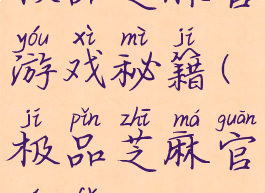 yóu xì mì jí
游戏秘籍(
jí pǐn zhī má guān
极品芝麻官